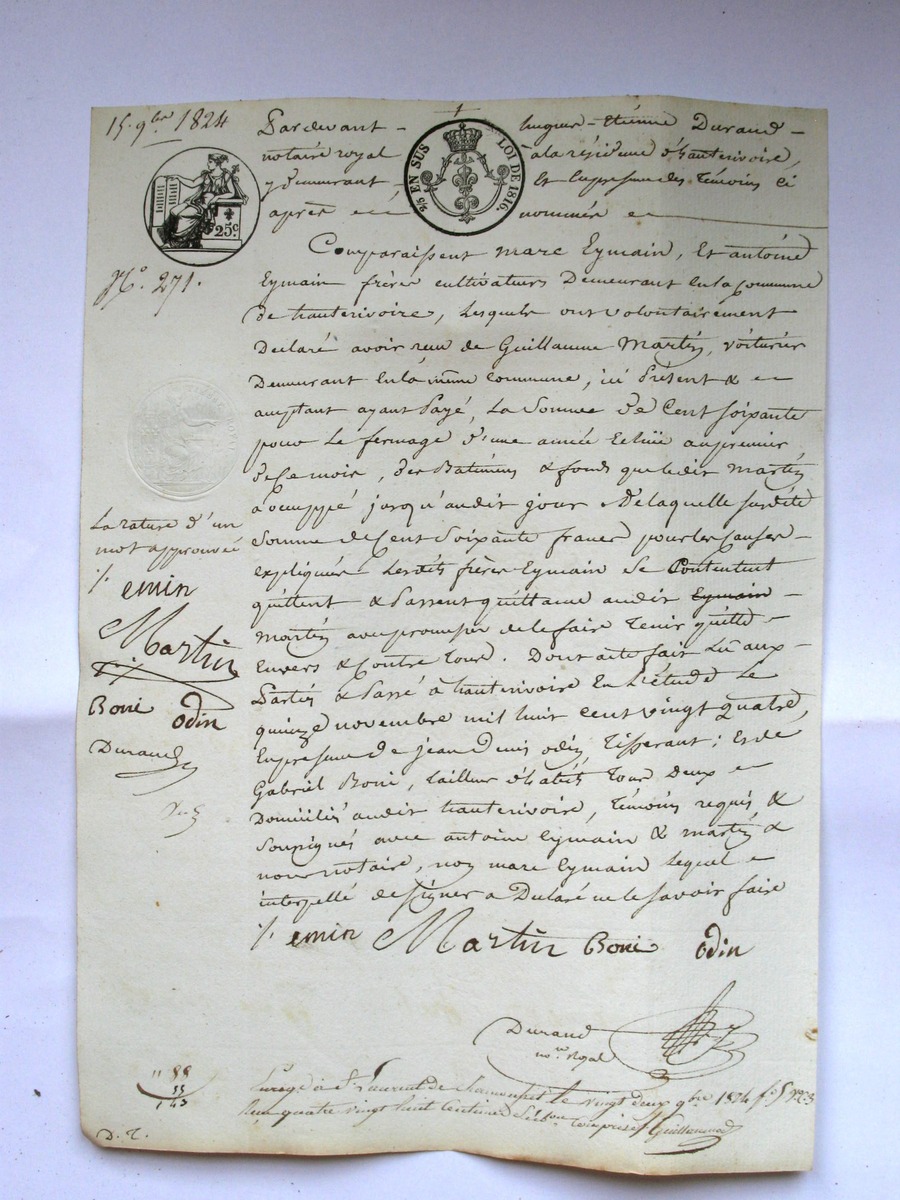 15. 9bre 1824
Pardevant - hugues - Etienne Durand -
notaire royal à la résidence d'hauterivoire,
y demeurant - Et en presence des Témoins ci
après nommés
2/5 EN SUS LOI DE 1816.
25c
No. 271.
Comparaissent marc Eymain, Et antoine
Eymain frères cultivateurs Demeurant en la Commune
de hauterivoire, Lesquels ont volontairement
Declaré avoir reçu de Guillaume Martin, voiturier
Demeurant en la même commune, ici Présent &
acceptant ayant Payé, La Somme de Cent soixante
pour Le fermage d'une année Echüe au premier
de Ce mois, des Batimens & fonds que ledit Martin
a occuppé jusqu'audit jour. De laquelle susdite
Somme de Cent Soixante francs pour les Causes -
expliquées Lesdits frères Eymain Se Contentent
quittent & Passent quittance audit Eymain -
Martin avec promesse de le faire Tenir quitte
Envers & Contre Tous. Dont acte fait Lû aux -
Parties & Passé à hauterivoire En L'étude Le
quinze novembre mil huit cent vingt quatre,
En presence de jean Denis odin Tisserant ; Et de
Gabriel Boni, tailleur d'habits Tous Deux
Domiciliés audit hauterivoire, Témoins requis &
Soussignés avec antoine Eymain & martin &
nous notaire, non marc Eymain Lequel
interpellé de Signer a Déclaré ne le savoir faire
La rature d'un
mot approuvée
emin
Martin
Boni odin
Durand
emin Martin Boni odin
Durand
nore Royal
" 88
55
1 43
D. T.
Enregé à St Laurent de Chamousset le vingt deux 9bre 1824 fo 5
Reçu quatre vingt huit Centimes Guillermard